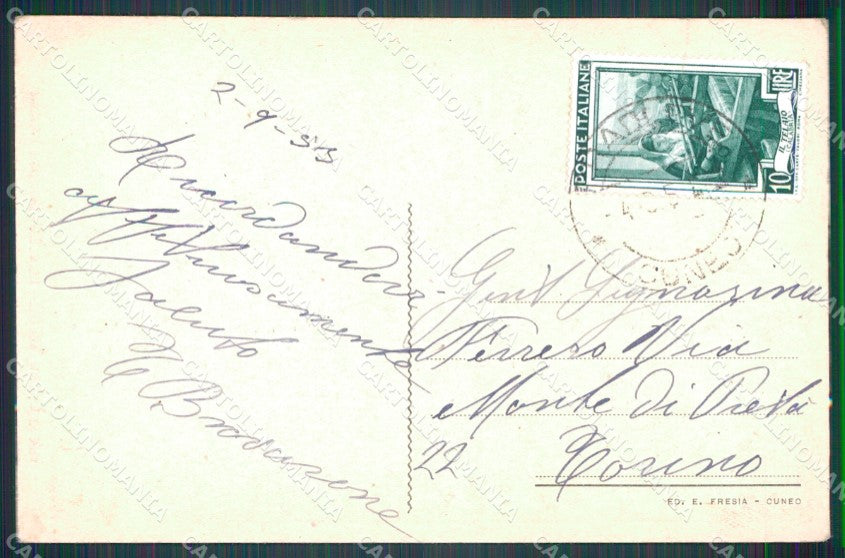 2-9-53
Ricordandola
affettuosamente
Saluto
POSTE ITALIANE
LIRE
10
IL TELAIO
CUNEO
Gent Signorina
Ferrero Via
Monte di Pietà
22 Torino
ED. E. FRESIA - CUNEO
CARTOLINOMANIA